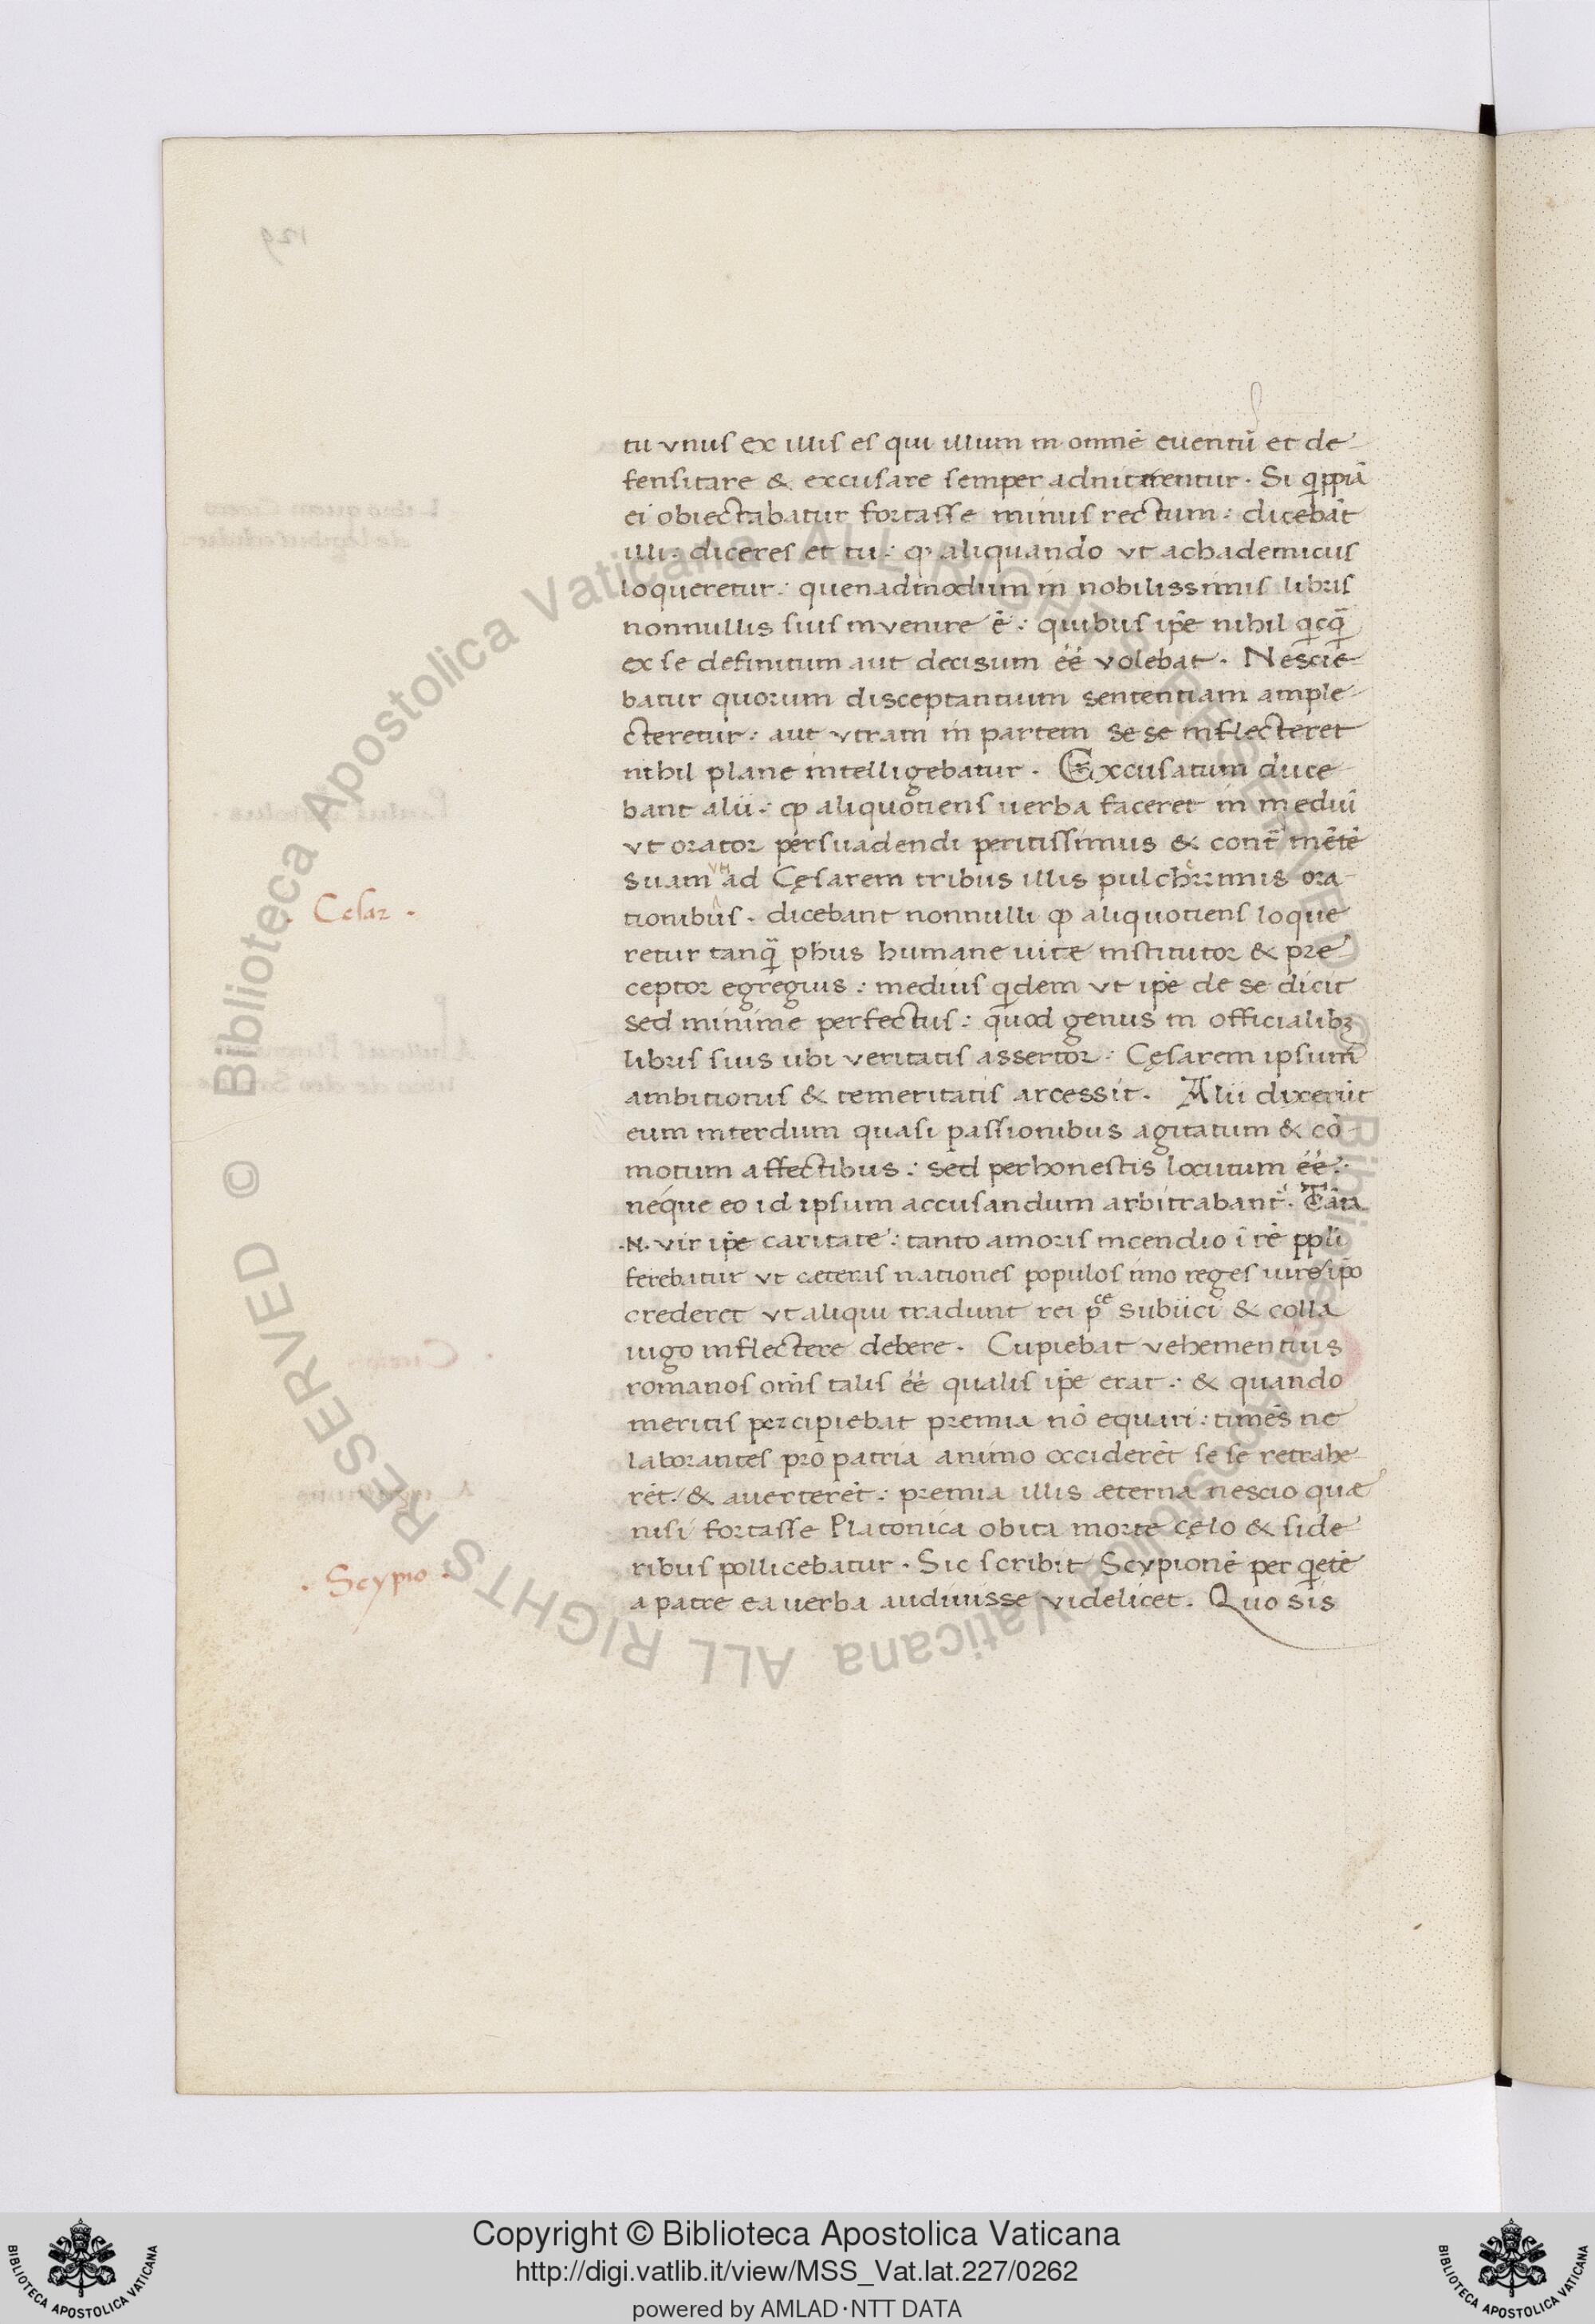 tu vnus ex illis es qui illum in omnē euentū et de-
fensitare & excusare semper adniterentur. Si q̇ppiā
ei obiectabatur fortasse minus rectum: dicebāt
illi: diceres et tu: ꝙ aliquando vt achademicus
loqueretur: quenadmodum in nobilissimis libris
nonnullis suis invenire ē: quibus ip̄e nihil q̇cq̄
ex se definitum aut decisum eē volebat. Nescie-
batur quorum disceptantium sententiam ample-
cteretur: aut vtram in partem se se inflecteret
nihil plane intelligebatur. Excusatum duce-
bant alii: ꝙ aliquotiens uerba faceret in mediū
vt orator persuadendi peritissimus & contᵃ mētē
suam vt ad Cęsarem tribus illis pulcherrimis ora-
tionibus. dicebant nonnulli ꝙ aliquotiens loque
retur tanq̄ ph̄us humane uitæ institutor & pre
ceptor egregius: medius q̇dem vt ip̄e de se dicit
sed minime perfectus: quod genus in officialibꝫ
libris suis ubi veritatis assertor: Cęsarem ipsum
ambitionis & temeritatis arcessit. Alii dixerūt
eum interdum quasi passionibus agitatum & cō-
motum affectibus: sed perhonestis locutum eē:
neque eo id ipsum accusandum arbitrabant̄. Tāta
.N. vir ip̄e caritate: tanto amoris incendio ī rē pp̄li
ferebatur vt cæteras nationes populos imo reges iure ip̄o
crederet vt aliqui tradunt rei p̄ce subiici & colla
iugo inflectere debere. Cupiebat vehementius
romanos om̄s talis eē qualis ip̄e erat: & quando
meritis percipiebat premia nō equari: timēs ne
laborantes pro patria animo occiderēt se se retrahe-
rēt: & auerterēt: premia illis æterna nescio quæ
nisi fortasse Platonica obita morte cęlo & side
ribus pollicebatur. Sic scribit Scypionē per q̇etē
a patre ea uerba audiuisse videlicet. Quo sis
. Cesar .
. Scypio .
129
Copyright © Biblioteca Apostolica Vaticana
http://digi.vatlib.it/view/MSS_Vat.lat.227/0262
powered by AMLAD·NTT DATA
BIBLIOTECA APOSTOLICA VATICANA
BIBLIOTECA APOSTOLICA VATICANA
© Biblioteca Apostolica Vaticana ALL RIGHTS RESERVED
© Biblioteca Apostolica Vaticana ALL RIGHTS RESERVED